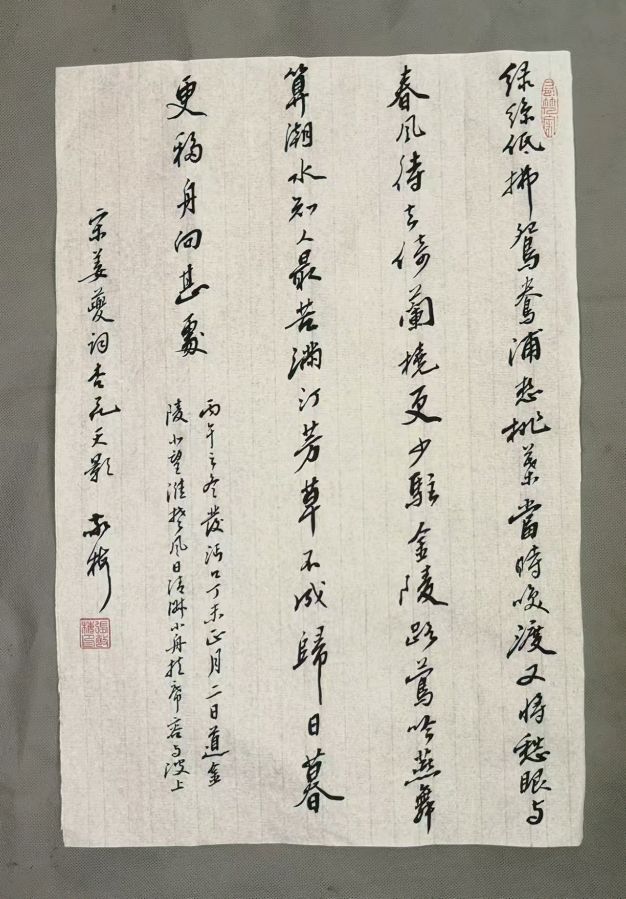 绿丝低拂鸳鸯浦想桃葉當時唤渡又将愁眼与
春风待去倚蘭橈更少駐金陵路莺吟燕舞
算潮水知人最苦满汀芳草不成歸日暮
更移舟向甚處
丙午之冬發沔口丁未正月二日道金
陵北望淮楚风日清淋小舟挂席容与波上
宋姜夔词杏花天影